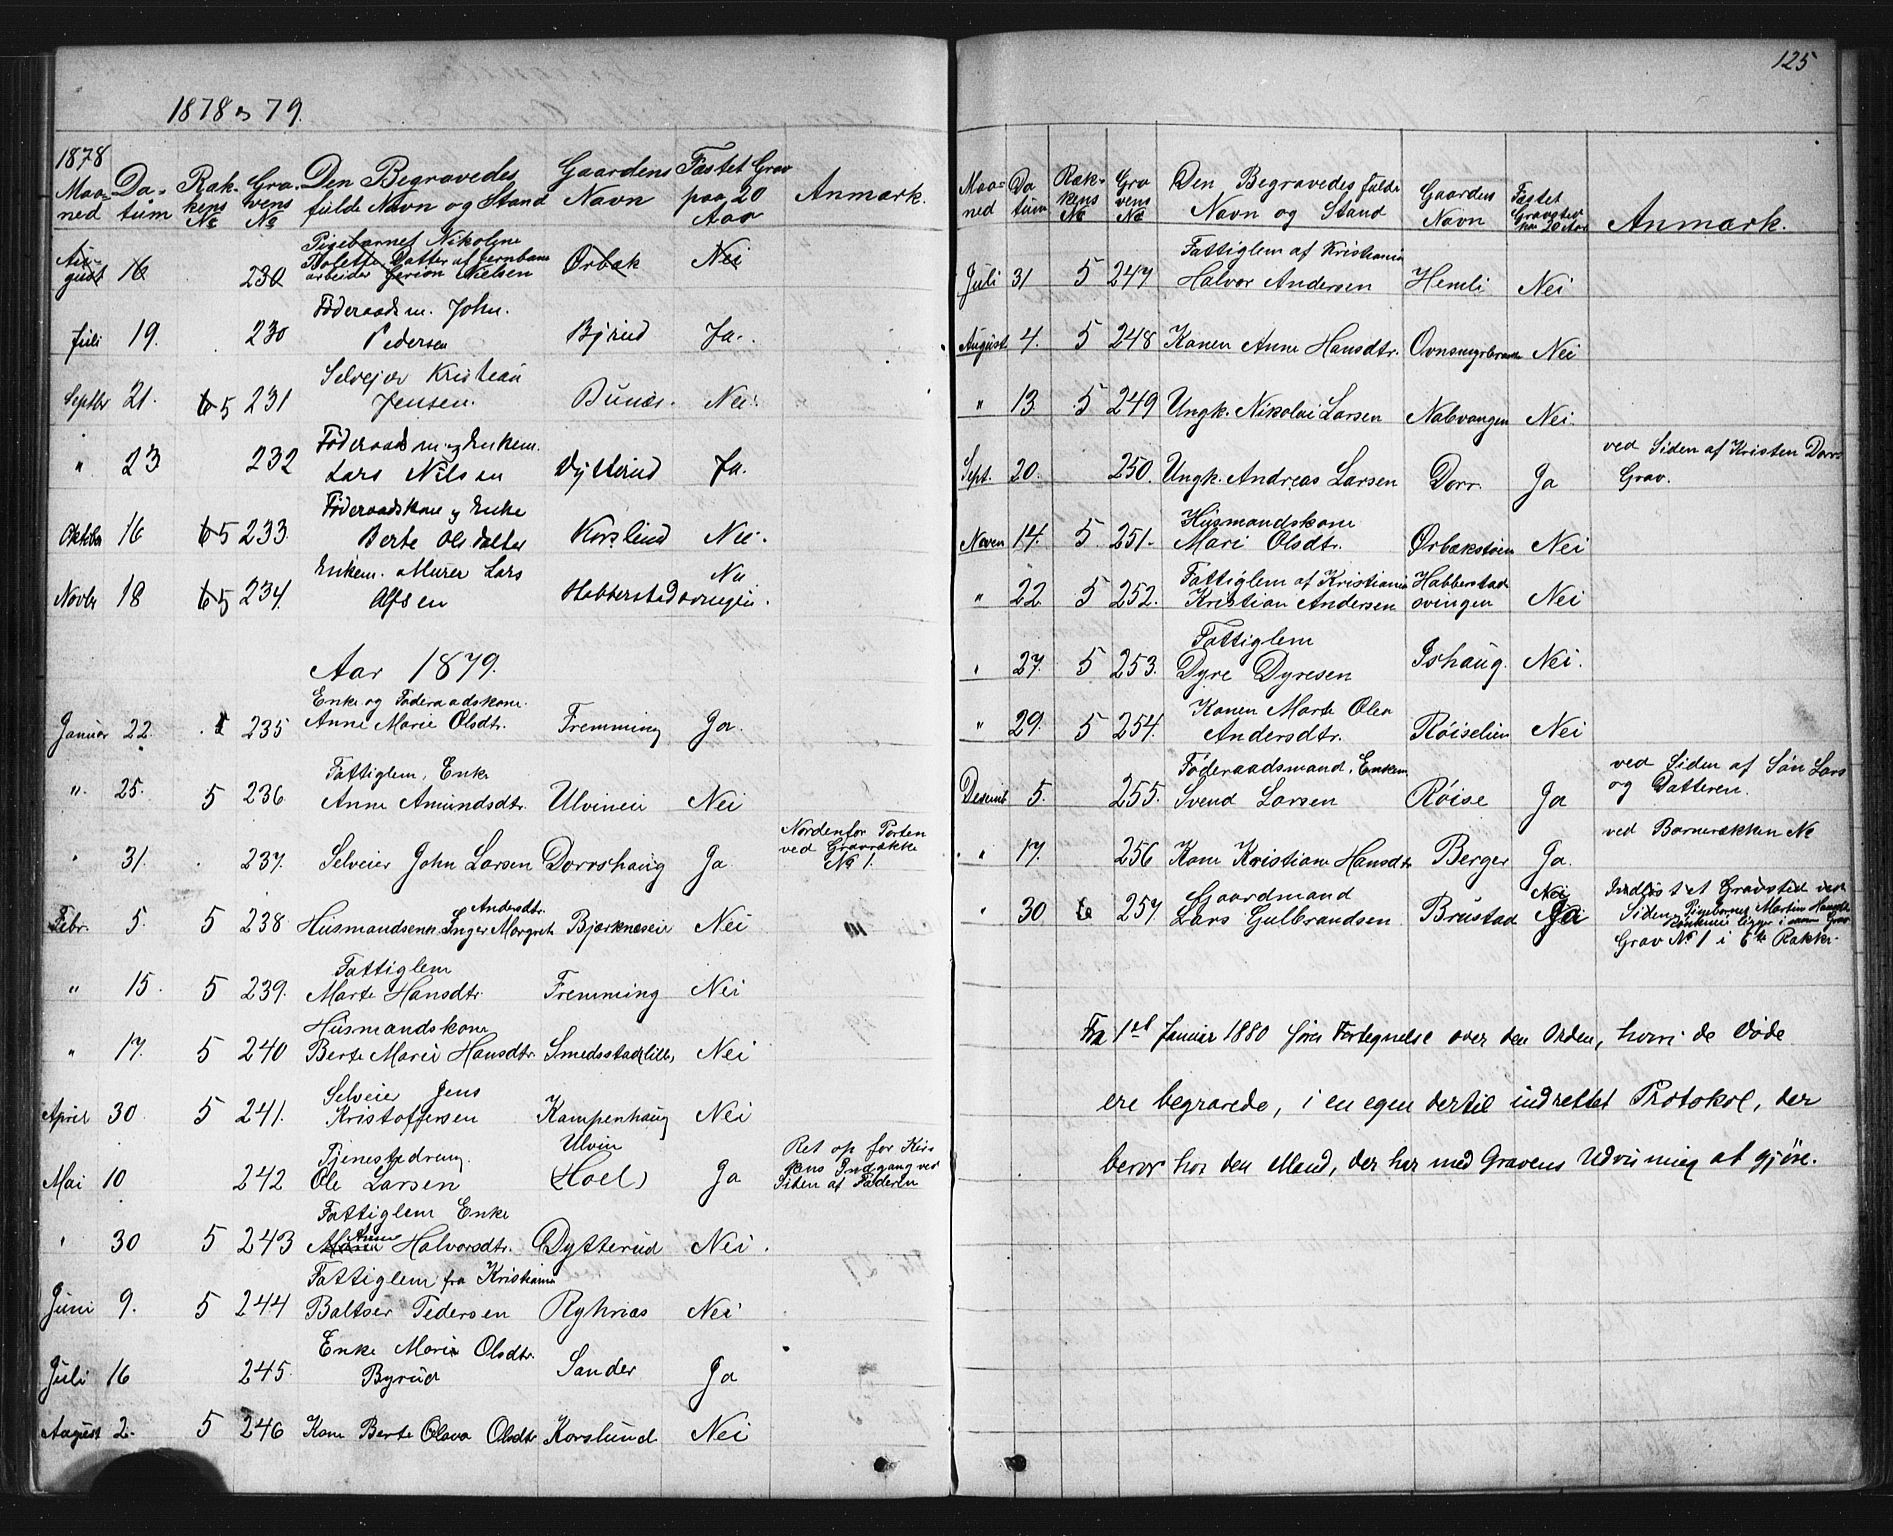 125
1878 & 79.
1878
Maaned Datum Rækkens No Gravens No Den Begravedes fulde Navn og Stand Gaardens Navn Fæstet Grav paa 20 Aar Anmærk.
August 16 230 Pigebarnet Nikoline
Bolette, Datter af Jernbane
arbeider Nielsen Ørbæk Nei
Føderaadsm. John.
Juli 19. 230 Pedersen Bjrud Ja.
Selvejer Kristian
Septbr 21. 6 5 231 Jensen. Nei.
Føderaadsm. og Enkem.
" 23 232 Lars Nilsen Dytterud Ja.
Føderaadskone og Enke
Oktober 16 6 5 233. Berte Olsdatter Korslund Nei.
Enkem. Murer Lars
Novbr 18 6 5 234. Alfsen Habberstad Nei.
Aar 1879.
Enke og Føderaadskone.
Januar 22. 235 Anne Marie Olsdtr. Fremming Ja.
Fattiglem, Enke
" 25. 5 236 Anne Amundsdtr. Ulvineie Nei
" 31. 237. Selveier John Larsen Dorrshaug Ja Nordenfor Porten
ved Gravrække
No 1.
Febr. 5. 5 238 Husmandsenke Inger Margret Andersdtr. Bjerkneseie Nei
Fattiglem
" 15. 5 239. Marte Hansdtr. Fremming Nei
Husmandskone
" 17. 5 240 Berte Marie Hansdtr. Smedsstad lille, Nei
Selveier Jens
April 30 5 241. Kristoffersen Kampenhaug Nei
Tjenestedreng. Ulvin
Mai 10 242 Ole Larsen (Hoel) Ja Ret op for Kir-
kens Indgang ved
Siden af Faderen
Fattiglem Enke
" 30 5 243 Marie Anne Halvorsdtr. Dytterud Nei.
Fattiglem fra Kristiania
Juni 9. 5 244 Baltser Pedersen Ryhnæs Nei
Enke Marie Olsdtr.
Juli 16 245. Byrud Sander Ja
August 2. 5 246 Kone Berte Olava Olsdtr Korslund Nei
Maaned Datum Rækkens No Gravens No Den Begravedes fulde Navn og Stand Gaardens Navn Fæstet Gravsted paa 20 Aar Anmærk.
Fattiglem af Kristiania
Juli 31 5 247 Halvor Andersen Hemli Nei
August 4. 5 248 Konen Anne Hansdtr. Nei
" 13 5 249 Ungk. Nikolai Larsen Nabvangen Nei.
Sept. 20. 250. Ungk. Andreas Larsen Dorr. Ja ved Siden af Kristen Dorrs
Grav.
Husmandskone
Novem 14. 5. 251. Mari Olsdtr. Ørbækstuen Nei
Fattiglem af Kristiania Habberstad
" 22 5 252. Kristian Andersen svingen Nei
Fattiglem
" 27. 5 253. Dyre Dyresen Ishaug. Nei.
Konen Marte Olea
" 29. 5 254. Andersdtr. Røiselien Nei
Føderaadsmand, Enkem.
Desemb 5. 255. Svend Larsen Røise Ja ved Siden af Søn Lars
og Datteren.
" 17. 256 Kone Kristiane Hansdtr Berger Ja. ved Barnerækken No
Gaardmand
" 30 6 257 Lars Gulbrandsen Brustad Nei Ja Indløst et Gravsted ved
Siden
Grav No 1 i 6te Række.
Fra 1st Januar 1880 føres Fortegnelse over den Orden, hvori de Døde
ere begravede, i en egen dertil indrettet Protokol, der
beror hos den Mand, der har med Gravens Udvisning at gjøre.